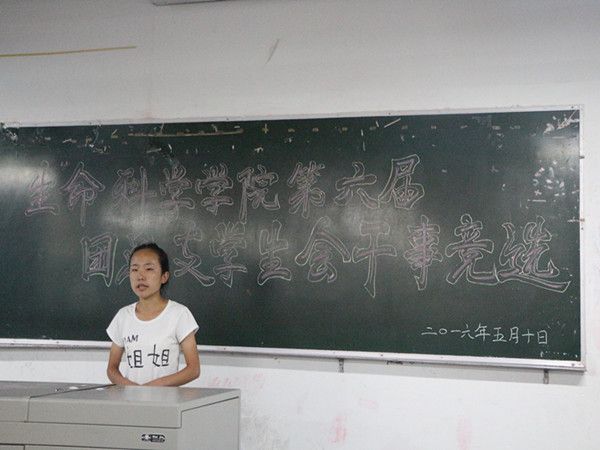 生命科学学院第六届
团总支学生会干事竞选
二〇一六年五月十日
AM
姐姐